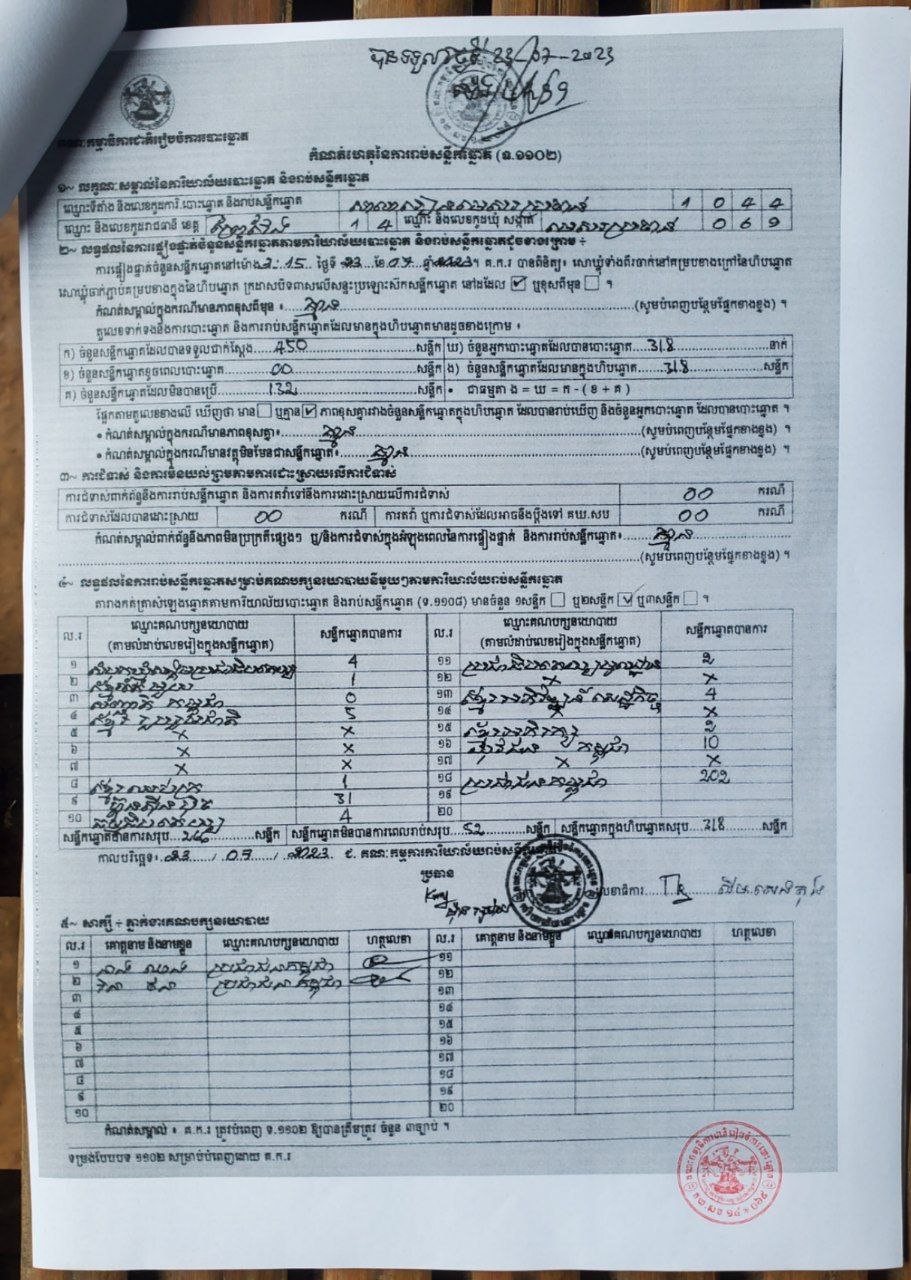 បានទទួលថ្ងៃទី 23/07-2023
គណៈកម្មាធិការជាតិរៀបចំការបោះឆ្នោត
កំណត់ហេតុនៃការរាប់សន្លឹកឆ្នោត (ទ.១១០២)
១~ លក្ខណៈសម្គាល់នៃការិយាល័យបោះឆ្នោត និងរាប់សន្លឹកឆ្នោត
ឈ្មោះទីតាំង និងលេខកូដការិ.បោះឆ្នោត និងរាប់សន្លឹកឆ្នោត 1 0 4 4
ឈ្មោះ និងលេខកូដរាជធានី ខេត្ត 1 4 ឈ្មោះ និងលេខកូដឃុំ សង្កាត់ 0 6 9
២~ លទ្ធផលនៃការផ្ទៀងផ្ទាត់ចំនួនសន្លឹកឆ្នោតតាមការិយាល័យបោះឆ្នោត និងរាប់សន្លឹកឆ្នោតដូចខាងក្រោម ÷
ការផ្ទៀងផ្ទាត់ចំនួនសន្លឹកឆ្នោតនៅម៉ោង 3:15 ថ្ងៃទី 23 ខែ 07 ឆ្នាំ 2023។ គ.ក.រ បានពិនិត្យ៖ សោឃ្លុំទាំងពីរចាក់នៅគម្របខាងក្រៅនៃហិបឆ្នោត
សោឃ្លុំចាក់ភ្ជាប់គម្របខាងក្នុងនៃហិបឆ្នោត ក្រដាសបិទពាសលើសន្ទះប្រឡោះសៀកសន្លឹកឆ្នោត នៅដដែល ☑ ឬខុសពីមុន ☐ ។
កំណត់សម្គាល់ក្នុងករណីមានភាពខុសពីមុន ៖ គ្មាន (សូមបំពេញបន្ថែមផ្នែកខាងខ្នង) ។
តួលេខទាក់ទងនឹងការបោះឆ្នោត និងការរាប់សន្លឹកឆ្នោតដែលមានក្នុងហិបឆ្នោតមានដូចខាងក្រោម ៖
ក) ចំនួនសន្លឹកឆ្នោតដែលបានទទួលជាក់ស្តែង 450 សន្លឹក ឃ) ចំនួនអ្នកបោះឆ្នោតដែលបានបោះឆ្នោត 318 នាក់
ខ) ចំនួនសន្លឹកឆ្នោតខូចពេលបោះឆ្នោត 00 សន្លឹក ង) ចំនួនសន្លឹកឆ្នោតដែលមានក្នុងហិបឆ្នោត 318 សន្លឹក
គ) ចំនួនសន្លឹកឆ្នោតដែលមិនបានប្រើ 132 សន្លឹក • ជាធម្មតា ង = ឃ = ក - ( ខ + គ )
ផ្អែកតាមតួលេខខាងលើ ឃើញថា មាន ☐ ឬគ្មាន ☑ ភាពខុសគ្នារវាងចំនួនសន្លឹកឆ្នោតក្នុងហិបឆ្នោត ដែលបានរាប់ឃើញ និងចំនួនអ្នកបោះឆ្នោត ដែលបានបោះឆ្នោត ។
• កំណត់សម្គាល់ក្នុងករណីមានភាពខុសគ្នា៖ គ្មាន (សូមបំពេញបន្ថែមផ្នែកខាងខ្នង) ។
• កំណត់សម្គាល់ក្នុងករណីមានវត្ថុមិនមែនជាសន្លឹកឆ្នោត៖ គ្មាន (សូមបំពេញបន្ថែមផ្នែកខាងខ្នង) ។
៣~ ការជំទាស់ និងការមិនយល់ព្រមតាមការដោះស្រាយលើការជំទាស់
ការជំទាស់ពាក់ព័ន្ធនឹងការរាប់សន្លឹកឆ្នោត និងការតវ៉ាទៅនឹងការដោះស្រាយលើការជំទាស់ 00 ករណី
ការជំទាស់ដែលបានដោះស្រាយ 00 ករណី ការតវ៉ា ឬការជំទាស់ដែលអាចនឹងប្តឹងទៅ គឃ.សប 00 ករណី
កំណត់សម្គាល់ពាក់ព័ន្ធនឹងភាពមិនប្រក្រតីផ្សេងៗ ឬ/និងការជំទាស់ក្នុងអំឡុងពេលនៃការផ្ទៀងផ្ទាត់ និងការរាប់សន្លឹកឆ្នោត៖ គ្មាន
(សូមបំពេញបន្ថែមផ្នែកខាងខ្នង) ។
៤~ លទ្ធផលនៃការរាប់សន្លឹកឆ្នោតសម្រាប់គណបក្សនយោបាយនីមួយៗតាមការិយាល័យរាប់សន្លឹកឆ្នោត
តារាងកត់ត្រាសំឡេងឆ្នោតតាមការិយាល័យបោះឆ្នោត និងរាប់សន្លឹកឆ្នោត (ទ.១១០៨) មានចំនួន ១សន្លឹក ☐ ឬ២សន្លឹក ☑ ឬ៣សន្លឹក ☐ ។
ល.រ ឈ្មោះគណបក្សនយោបាយ (តាមលំដាប់លេខរៀងក្នុងសន្លឹកឆ្នោត) សន្លឹកឆ្នោតបានការ ល.រ ឈ្មោះគណបក្សនយោបាយ (តាមលំដាប់លេខរៀងក្នុងសន្លឹកឆ្នោត) សន្លឹកឆ្នោតបានការ
១ 4 ១១ 2
២ 1 ១២ x x
៣ 0 ១៣ ខ្មែរអភិវឌ្ឍន៍សេដ្ឋកិច្ច 4
៤ ខ្មែររួបរួមជាតិ 5 ១៤ x x
៥ x x ១៥ 2
៦ x x ១៦ កម្ពុជា 10
៧ x x ១៧ x x
៨ 1 ១៨ ប្រជាជនកម្ពុជា 202
៩ ហ្វ៊ុនស៊ិនប៉ិច 31 ១៩
១០ 4 ២០
សន្លឹកឆ្នោតបានការសរុប 266 សន្លឹក សន្លឹកឆ្នោតមិនបានការពេលរាប់សរុប 52 សន្លឹក សន្លឹកឆ្នោតក្នុងហិបឆ្នោតសរុប 318 សន្លឹក
កាលបរិច្ឆេទ៖ 23 / 07 / 2023 ជ. គណៈកម្មការការិយាល័យរាប់សន្លឹកឆ្នោត
ប្រធាន
លេខាធិការ
៥~ សាក្សី ÷ ភ្នាក់ងារគណបក្សនយោបាយ
ល.រ គោត្តនាម និងនាមខ្លួន ឈ្មោះគណបក្សនយោបាយ ហត្ថលេខា ល.រ គោត្តនាម និងនាមខ្លួន ឈ្មោះគណបក្សនយោបាយ ហត្ថលេខា
១ ប្រជាជនកម្ពុជា ១១
២ ប្រជាជនកម្ពុជា ១២
៣ ១៣
៤ ១៤
៥ ១៥
៦ ១៦
៧ ១៧
៨ ១៨
៩ ១៩
១០ ២០
កំណត់សម្គាល់ ៖ គ.ក.រ ត្រូវបំពេញ ទ.១១០២ ឱ្យបានត្រឹមត្រូវ ចំនួន ៣ច្បាប់ ។
ទម្រង់បែបបទ ១១០២ សម្រាប់បំពេញដោយ គ.ក.រ